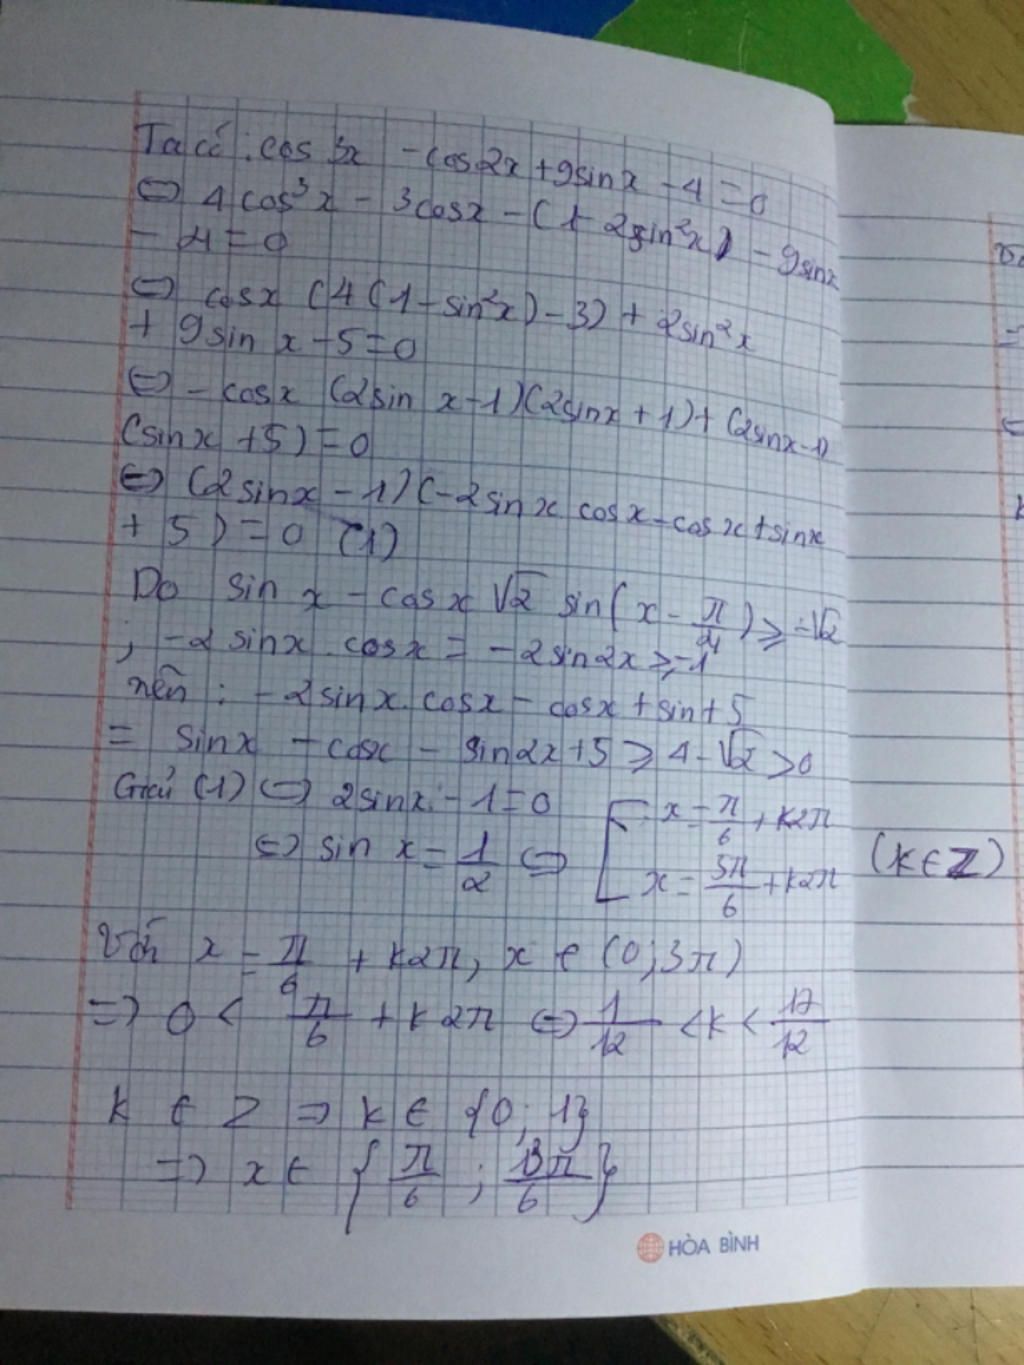 Ta có: cos 3x - cos2x + 9sinx - 4 = 0
⇔ 4cos³x - 3cosx - (1 - 2sin²x) - 9sinx
- 4 = 0
⇔ cosx (4(1-sin²x)-3) + 2sin²x
+ 9sin x - 5 = 0
⇔ - cosx (2sin x-1)(2sinx + 1) + (2sinx-1)
(sinx + 5) = 0
⇔ (2sinx - 1)(-2sinx cosx - cosx + sinx
+ 5) = 0 (1)
Do sin x - cosx √2 sin(x - π/4) ≥ -√2
; -2sinx.cosx = -2sin2x ≥ -1
nên: -2sinx.cosx - cosx + sin + 5
= sinx - cosx - sin2x + 5 ≥ 4 - √2 > 0
Giải (1) ⇔ 2sinx - 1 = 0
⇔ sin x = 1/2 ⇔ [ x = π/6 + k2π
x = 5π/6 + k2π (k∈Z)
Với x = π/6 + k2π, x ∈ (0;3π)
⇒ 0 < π/6 + k2π ⇔ 1/12 < k < 17/12
k ∈ Z ⇒ k ∈ {0; 1}
⇒ x ∈ {π/6 ; 13π/6}
HÒA BÌNH